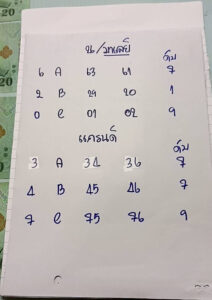 น/มาเลย์
ดับ
6 A 63 61 7
2 B 29 20 1
0 C 01 02 9
แกรนด์
ดับ
3 A 34 36 7
4 B 45 46 7
7 C 75 76 9